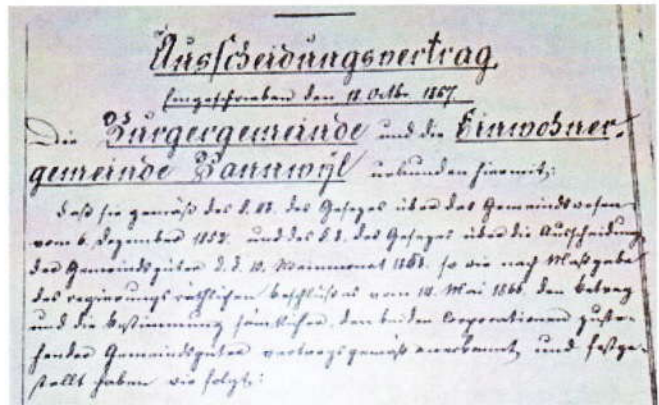 Ausscheidungsvertrag
Eingeschrieben den 18. Octbr. 1867.
Die Burgergemeinde und die Einwohner-
gemeinde Bannwyl urkunden hiemit:
daß sie gemäß des §. des Gesezes über das Gemeindswesen
vom 6. Dezember 1852. und des §. des Gesezes über die Ausscheidung
der Gemeindsgüter d. d. 10. Weinmonat 1853. so wie nach Maßgabe
des regierungsräthlichen Beschlusses vom Mai den Betrag
und die Bestimmung sämtlicher, den beiden Corporationen zuste-
hender Gemeindsgüter vertragsgemäß anerkannt, und festge-
stellt haben wie folgt: